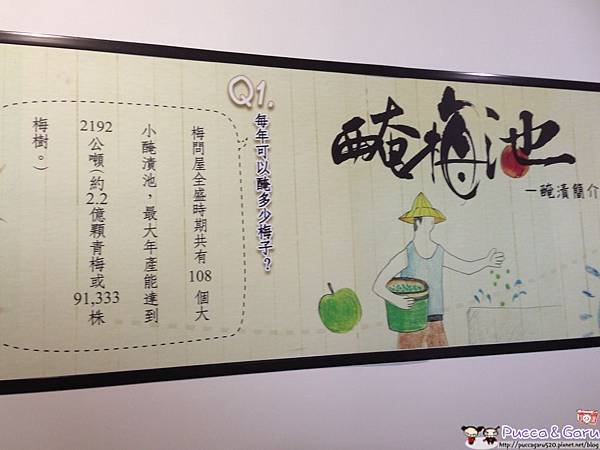 醃梅池
－醃漬簡介
Q1.
每年可以醃多少梅子？
梅問屋全盛時期共有 108 個大
小醃漬池，最大年產能達到
2192 公噸（約 2.2 億顆青梅或 91,333 株
梅樹。）
Pucca & Garu
http://puccagaru520.pixnet.net/blog